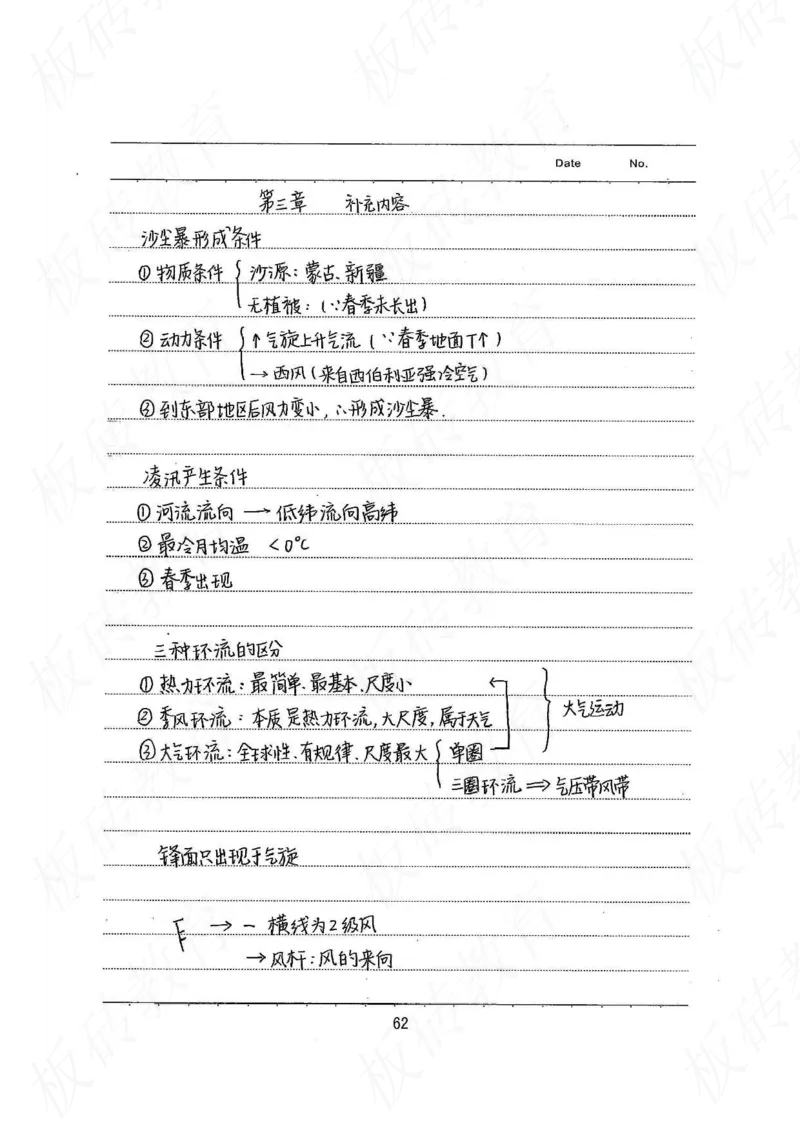 Date No.
第三章 补充内容
沙尘暴形成条件
① 物质条件 { 沙源：蒙古、新疆
无植被：(∵春季未长出)
② 动力条件 { ↑气旋上升气流 (∵春季地面T↑)
→西风(来自西伯利亚强冷空气)
③ 到东部地区后风力变小，∴形成沙尘暴.
凌汛产生条件
① 河流流向 → 低纬流向高纬
② 最冷月均温 <0℃
③ 春季出现
三种环流的区分
① 热力环流：最简单、最基本、尺度小
② 季风环流：本质是热力环流,大尺度,属于天气
} 大气运动
③ 大气环流：全球性、有规律、尺度最大 { 单圈
三圈环流 ⇒ 气压带风带
锋面只出现于气旋
→ 一横线为2级风
→风杆：风的来向
62
板砖教育